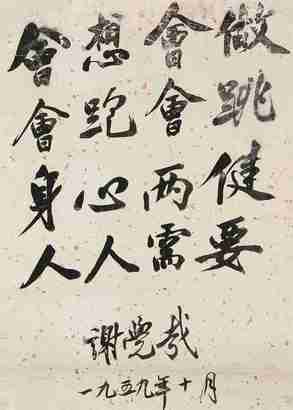 會想會做
會跑會跳
身心两健
人人需要
謝覺哉
一九五九年十月